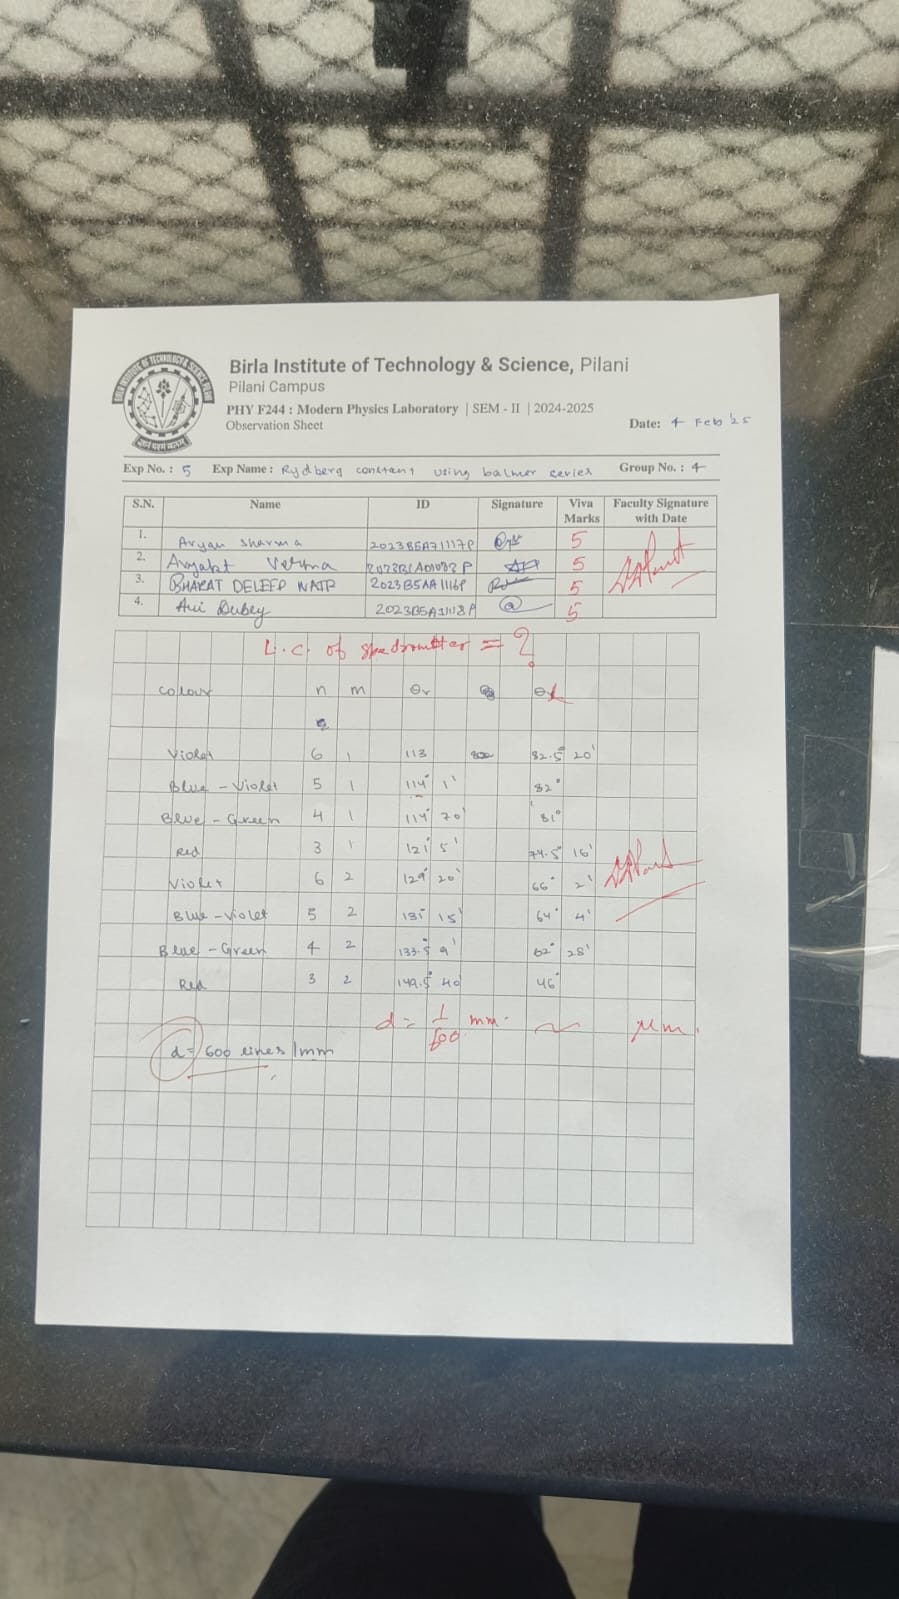 Birla Institute of Technology & Science, Pilani
Pilani Campus
PHY F244 : Modern Physics Laboratory | SEM - II | 2024-2025
Observation Sheet
Date: 4 Feb '25
Exp No. : 5 Exp Name : Rydberg constant using balmer series Group No. : 4
S.N. Name ID Signature Viva Marks Faculty Signature with Date
1. Aryan Sharma 2023B5A71117P 5
2. Verma 5
3. BHARAT DELEEP NAIR 2023B5AA1116P 5
4. Avi Dubey 2023B5A1118P 5
L.C. of spectrometer = ?
colour n m θr θL
Violet 6 1 113 82.5° 20'
Blue - Violet 5 1 114° 1' 82°
Blue - Green 4 1 114° 70' 81°
Red 3 1 121° 5' 74.5° 16'
Violet 6 2 129° 20' 66° 2'
Blue - Violet 5 2 131° 15' 64° 4'
Blue - Green 4 2 133.5° 9' 62° 28'
Red 3 2 149.5° 40' 46°
d = 1/600 mm. μm.
d = 600 lines/mm